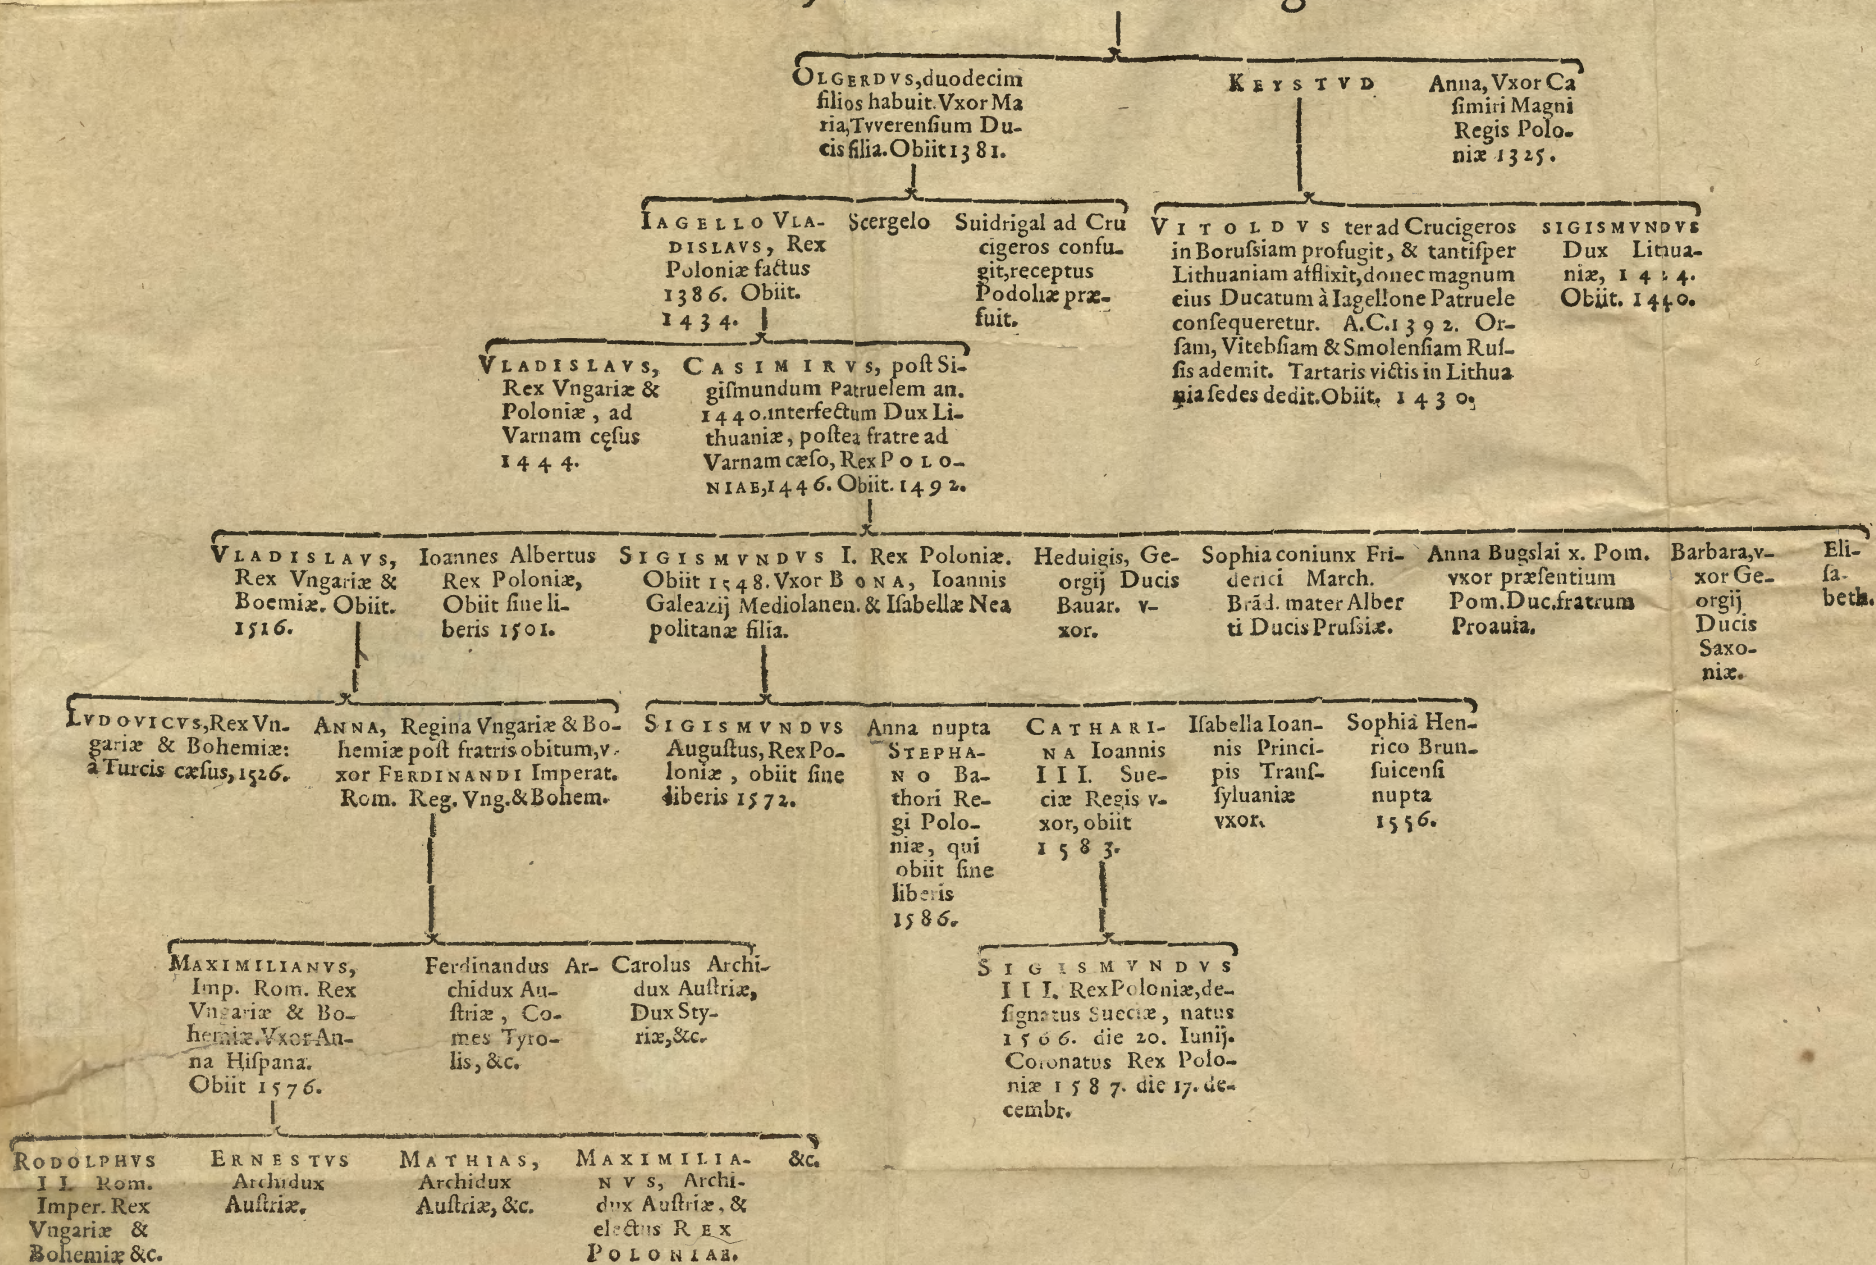 OLGERDVS, duodecim
filios habuit. Vxor Ma
ria, Tvverenſium Du-
cis filia. Obiit 1381.
KEYSTVD
Anna, Vxor Ca
ſimiri Magni
Regis Polo-
niæ 1325.
IAGELLO VLA-
DISLAVS, Rex
Poloniæ factus
1386. Obiit.
1434.
Scergelo
Suidrigal ad Cru
cigeros confu-
git, receptus
Podoliæ præ-
fuit.
VITOLDVS ter ad Crucigeros
in Boruſsiam profugit, & tantiſper
Lithuaniam afflixit, donec magnum
eius Ducatum à Iagellone Patruele
conſequeretur. A.C. 1392. Or-
ſam, Vitebſiam & Smolenſiam Ruſ-
ſis ademit. Tartaris victis in Lithua
nia ſedes dedit. Obiit. 1430.
SIGISMVNDVS
Dux Lithua-
niæ,
Obiit. 1440.
VLADISLAVS,
Rex Vngariæ &
Poloniæ, ad
Varnam cęſus
1444.
CASIMIRVS, poſt Si-
giſmundum Patruelem an.
1440. interfectum Dux Li-
thuaniæ, poſtea fratre ad
Varnam cæſo, Rex POLO-
NIAE, 1446. Obiit. 1492.
VLADISLAVS,
Rex Vngariæ &
Boemiæ. Obiit.
1516.
Ioannes Albertus
Rex Poloniæ,
Obiit ſine li-
beris 1501.
SIGISMVNDVS I. Rex Poloniæ.
Obiit 1548. Vxor BONA, Ioannis
Galeazij Mediolanen. & Iſabellæ Nea
politanæ filia.
Heduigis, Ge-
orgij Ducis
Bauar. v-
xor.
Sophia coniunx Fri-
derici March.
Brãd. mater Alber
ti Ducis Pruſsiæ.
Anna Bugslai x. Pom.
vxor præſentium
Pom. Duc. fratrum
Proauia.
Barbara, v-
xor Ge-
orgij
Ducis
Saxo-
niæ.
Eli-
ſa-
beth.
LVDOVICVS, Rex Vn-
gariæ & Bohemiæ:
à Turcis cæſus, 1526.
ANNA, Regina Vngariæ & Bo-
hemiæ poſt fratris obitum, v-
xor FERDINANDI Imperat.
Rom. Reg. Vng. & Bohem.
SIGISMVNDVS
Auguſtus, Rex Po-
loniæ, obiit ſine
liberis 1572.
Anna nupta
STEPHA-
NO Ba-
thori Re-
gi Polo-
niæ, qui
obiit ſine
liberis
1586.
CATHARI-
NA Ioannis
III. Sue-
ciæ Regis v-
xor, obiit
1583.
Iſabella Ioan-
nis Princi-
pis Tranſ-
ſyluaniæ
vxor.
Sophia Hen-
rico Brun-
ſuicenſi
nupta
1556.
MAXIMILIANVS,
Imp. Rom. Rex
Vngariæ & Bo-
hemiæ. Vxor An-
na Hiſpana.
Obiit 1576.
Ferdinandus Ar-
chidux Au-
ſtriæ, Co-
mes Tyro-
lis, &c.
Carolus Archi-
dux Auſtriæ,
Dux Sty-
riæ, &c.
SIGISMVNDVS
III. Rex Poloniæ, de-
ſignatus Sueciæ, natus
1566. die 20. Iunij.
Coronatus Rex Polo-
niæ 1587. die 17. de-
cembr.
RODOLPHVS
II. Rom.
Imper. Rex
Vngariæ &
Bohemiæ &c.
ERNESTVS
Archidux
Auſtriæ.
MATHIAS,
Archidux
Auſtriæ, &c.
MAXIMILIA-
NVS, Archi-
dux Auſtriæ, &
electus REX
POLONIAE.
&c.